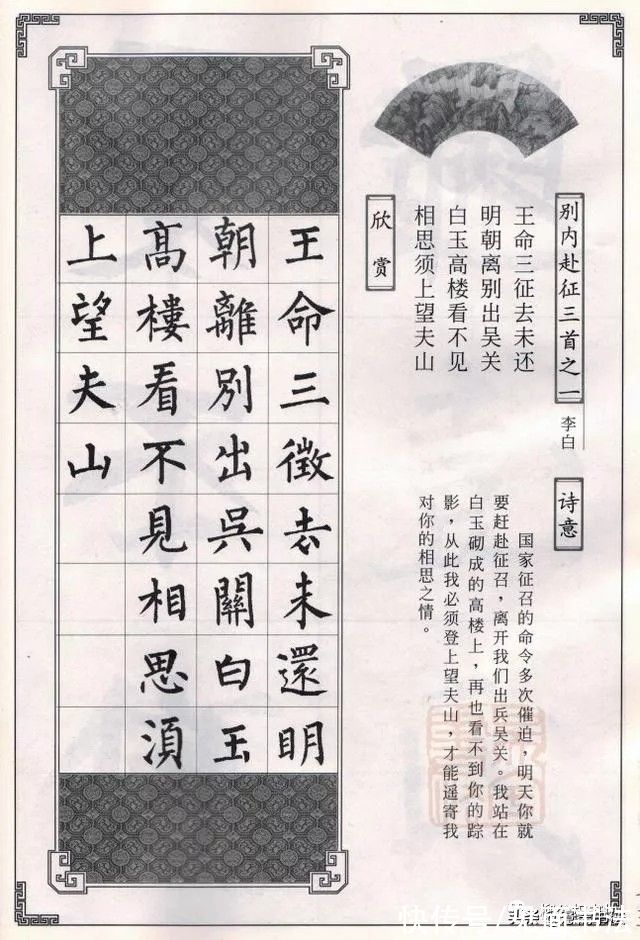 别内赴征三首之一
李白
王命三征去未还
明朝离别出吴关
白玉高楼看不见
相思须上望夫山
诗意
国家征召的命令多次催迫，明天你就
要赶赴征召，离开我们出兵吴关。我站在
白玉砌成的高楼上，再也看不到你的踪
影，从此我必须登上望夫山，才能遥寄我
对你的相思之情。
欣赏
王命三徵去未還明
朝離別出吳關白玉
髙樓看不見相思須
上望夫山
快传号/